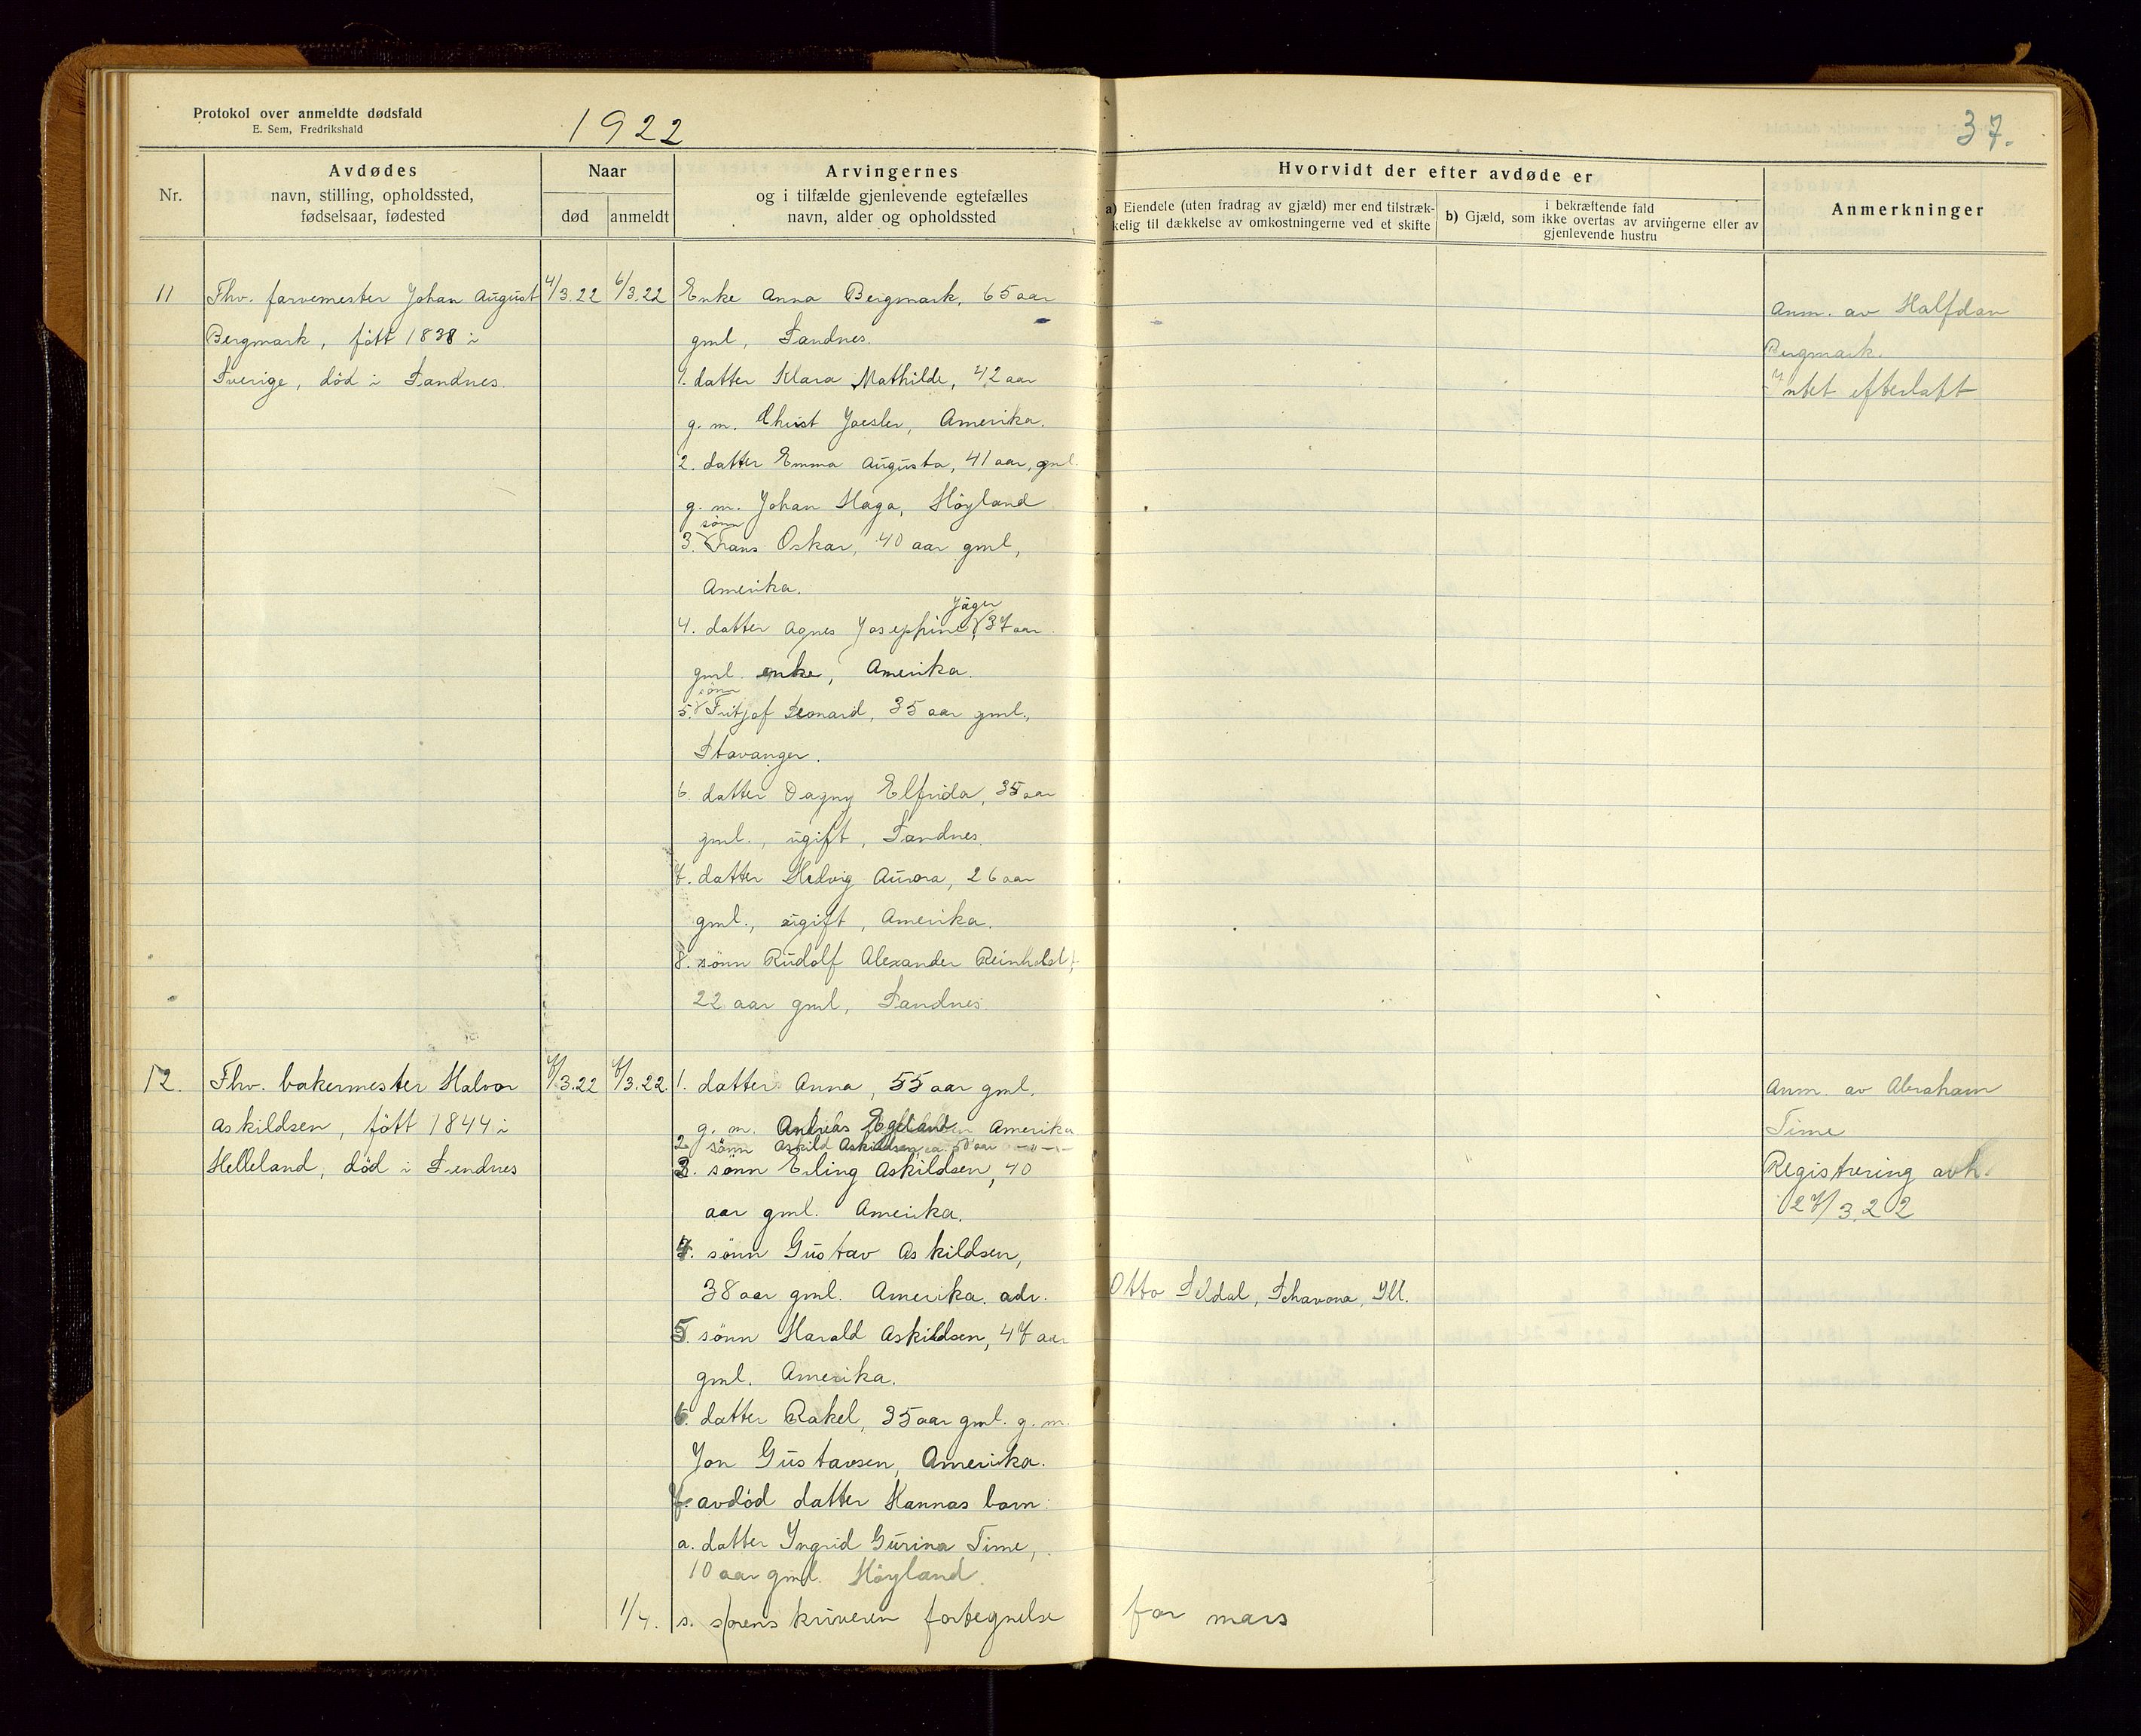 Protokol over anmeldte dødsfald
E. Sem, Fredrikshald
1922
37.
Nr.
Avdødes
navn, stilling, opholdssted,
fødselsaar, fødested
Naar
død
anmeldt
Arvingernes
og i tilfælde gjenlevende egtefælles
navn, alder og opholdssted
Hvorvidt der efter avdøde er
a) Eiendele (uten fradrag av gjæld) mer end tilstræk-
kelig til dækkelse av omkostningerne ved et skifte
i bekræftende fald
b) Gjæld, som ikke overtas av arvingerne eller av
gjenlevende hustru
Anmerkninger
11
Fhv. farvemester Johan August
Bergmark, fött 1838 i
Sverige, död i Sandnes.
4/3.22
6/3.22
Enke Anna Bergmark, 65 aar
gml, Sandnes.
1. datter Klara Mathilde, 42 aar
g. m. Christ Joesler, Amerika.
2. datter Emma Augusta, 41 aar, gml.
g. m. Johan Haga, Höyland
sönn
3. Frans Oskar, 40 aar gml,
Amerika.
Jäger
4. datter Agnes Josephine, 37 aar
gml. enke, Amerika.
sönn
5. Fritjof Leonard, 35 aar gml.,
Stavanger.
6. datter Dagny Elfrida, 35 aar
gml., ugift, Sandnes.
7. datter Helvig Aurora, 26 aar
gml., ugift, Amerika.
8. sönn Rudolf Alexander Reinholdt,
22 aar gml, Sandnes.
Anm. av Halfdan
Bergmark.
Intet efterlatt
12.
Fhv. bakermester Halvor
Askildsen, fött 1844 i
Helleland, död i Sandnes
7/3.22
7/3.22.
1. datter Anna, 55 aar gml.
g. m. Andreas Egeland Amerika
2 sönn Askild Askildsen ca. 50 aar —"—
3. sönn Erling Askildsen, 40
aar gml. Amerika.
4. sönn Gustav Askildsen,
38 aar gml. Amerika. adr. Otto Seldal, Schavona, Ill.
5. sönn Harald Askildsen, 47 aar
gml. Amerika.
6. datter Rakel, 35 aar gml. g. m.
Jon Gustavsen, Amerika.
7. avdöd datter Hannas barn:
a. datter Ingrid Gurina Time,
10 aar gml. Höyland.
Anm. av Abraham
Time
Registrering avh.
27/3.22
1/4. s. sorenskriveren fortegnelse for mars